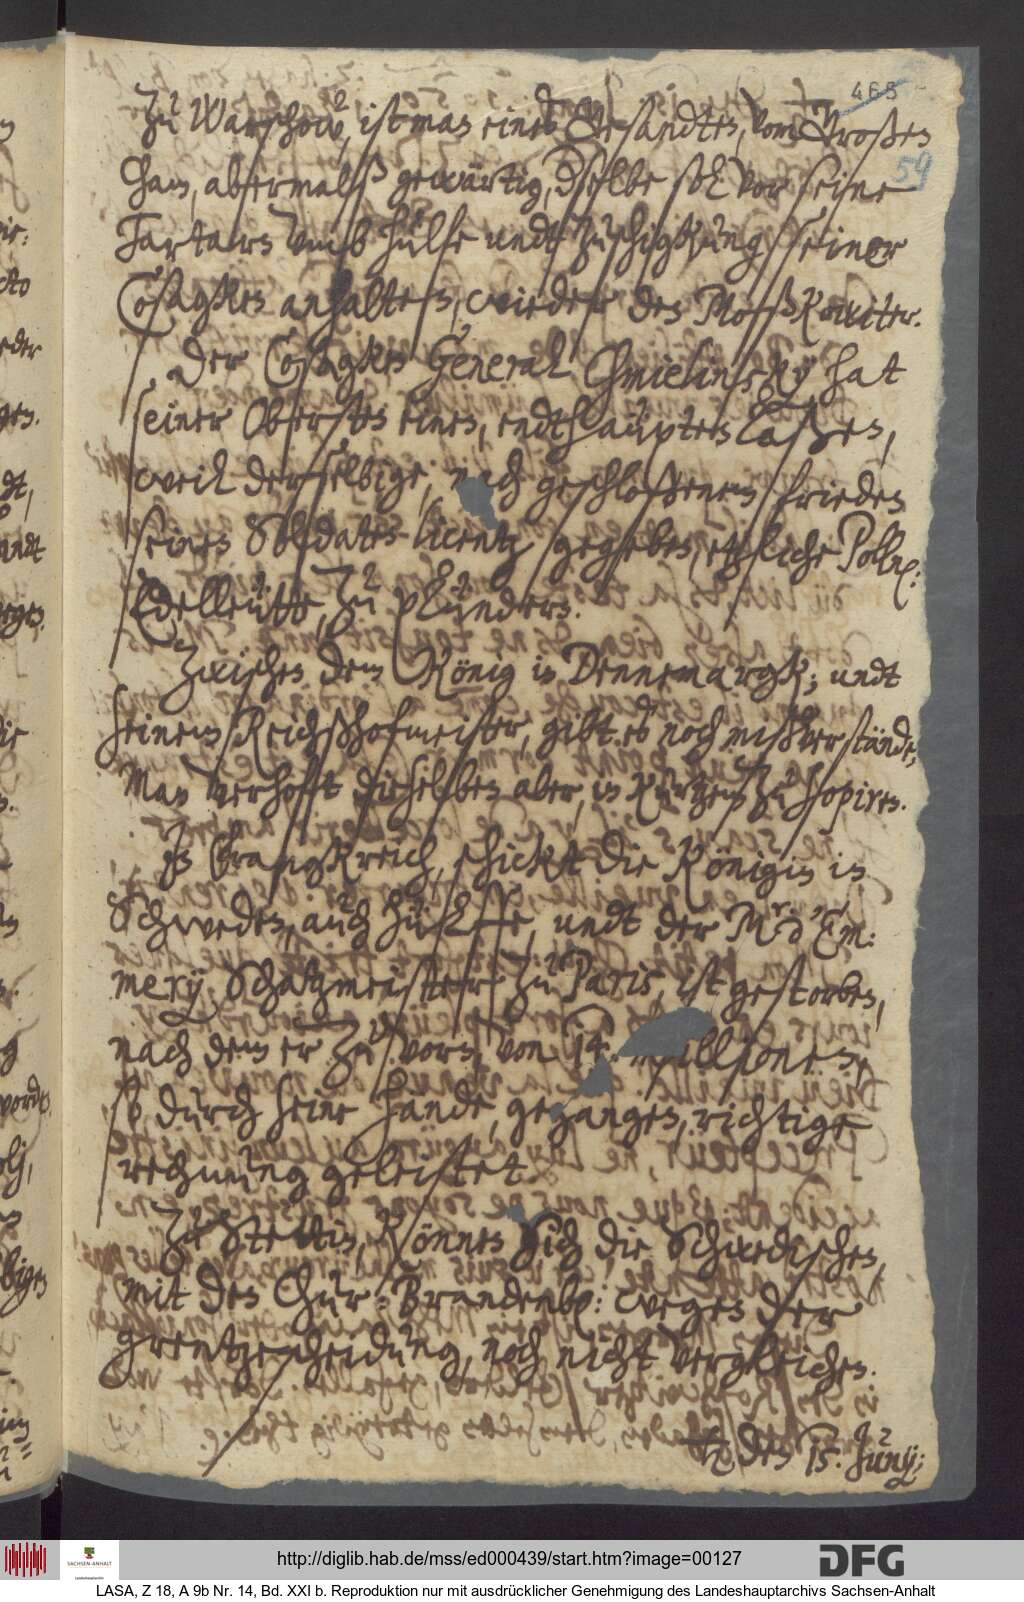 468
59
Zu Warschow, ist man eines Gesandten, vom Großen
Cham, abermalß gewärtig, Dieselbe soll vor seine
Tartarn umb hülfe undt Zuschigkung seiner
Cosagken anhalten, wieder den Moßkowiter.
Der Cosagken General Chmielinsky hat
seiner Obersten einen, endthaupten laßen,
weil derselbige, nach geschloßenem frieden
seinen Soldaten licentz gegeben, etzliche Polln:
Edelleutte, Zu plündern.
Zwischen dem König in Dennemargk; undt
seinem Reichshofmeister, gibt es noch mißverstände,
Man verhofft dieselben aber, in kurtzem zu sopiren.
In Frangkreich, schickt die Königin in
Schweden, auch hülffe, undt der Mr. d' Em:
mery Schatzmeister zu Paris, ist gestorben,
nach dem er zuvorn, von 14. millionen,
so durch seine hände, gegangen, richtige
rechnung geleistet.
Zu Stettin, können sich die Schwedischen,
mit den Chur-Brandenb: wegen der
grentzescheidung, noch nicht vergleichen.
den 15. Junij;
http://diglib.hab.de/mss/ed000439/start.htm?image=00127
SACHSEN-ANHALT
Landeshauptarchiv
DFG
LASA, Z 18, A 9b Nr. 14, Bd. XXI b. Reproduktion nur mit ausdrücklicher Genehmigung des Landeshauptarchivs Sachsen-Anhalt